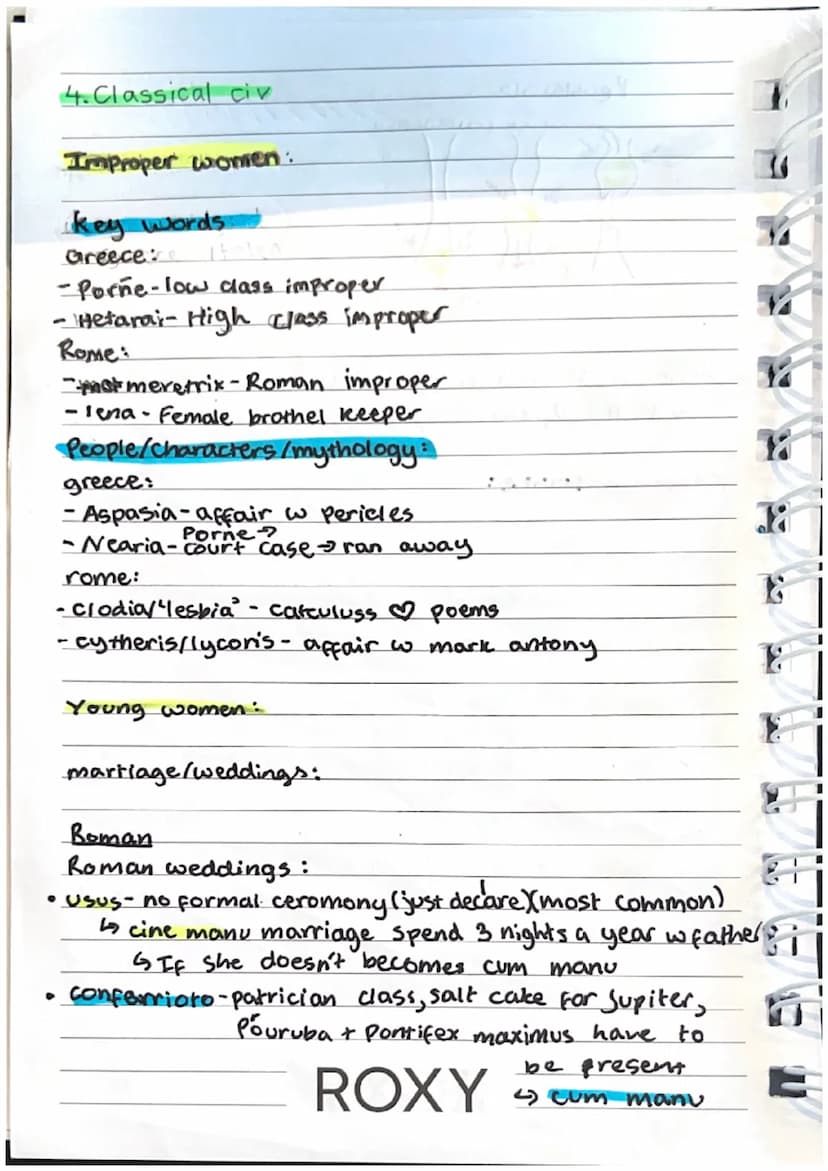 4. Classical civ
Improper women:
key words
Greece:
- Porne - low class improper
- Hetarai - High class improper
Rome:
- meretrix - Roman improper
- lena - Female brothel keeper
People/characters/mythology:
greece:
- Aspasia - affair w pericles
- Nearia - Porne → court case → ran away
rome:
- clodia/"lesbia" - catculuss ♡ poems
- cytheris/lycoris - affair w mark antony
Young women:
marriage/weddings:
Roman
Roman weddings:
• usus - no formal ceromony (just declare) (most common)
↳ cine manu marriage spend 3 nights a year w father
↳ If she doesn't becomes cum manu
• confarrioto - patrician class, salt cake for Jupiter,
+ Pontifex maximus have to
be present
↳ cum manu
ROXY